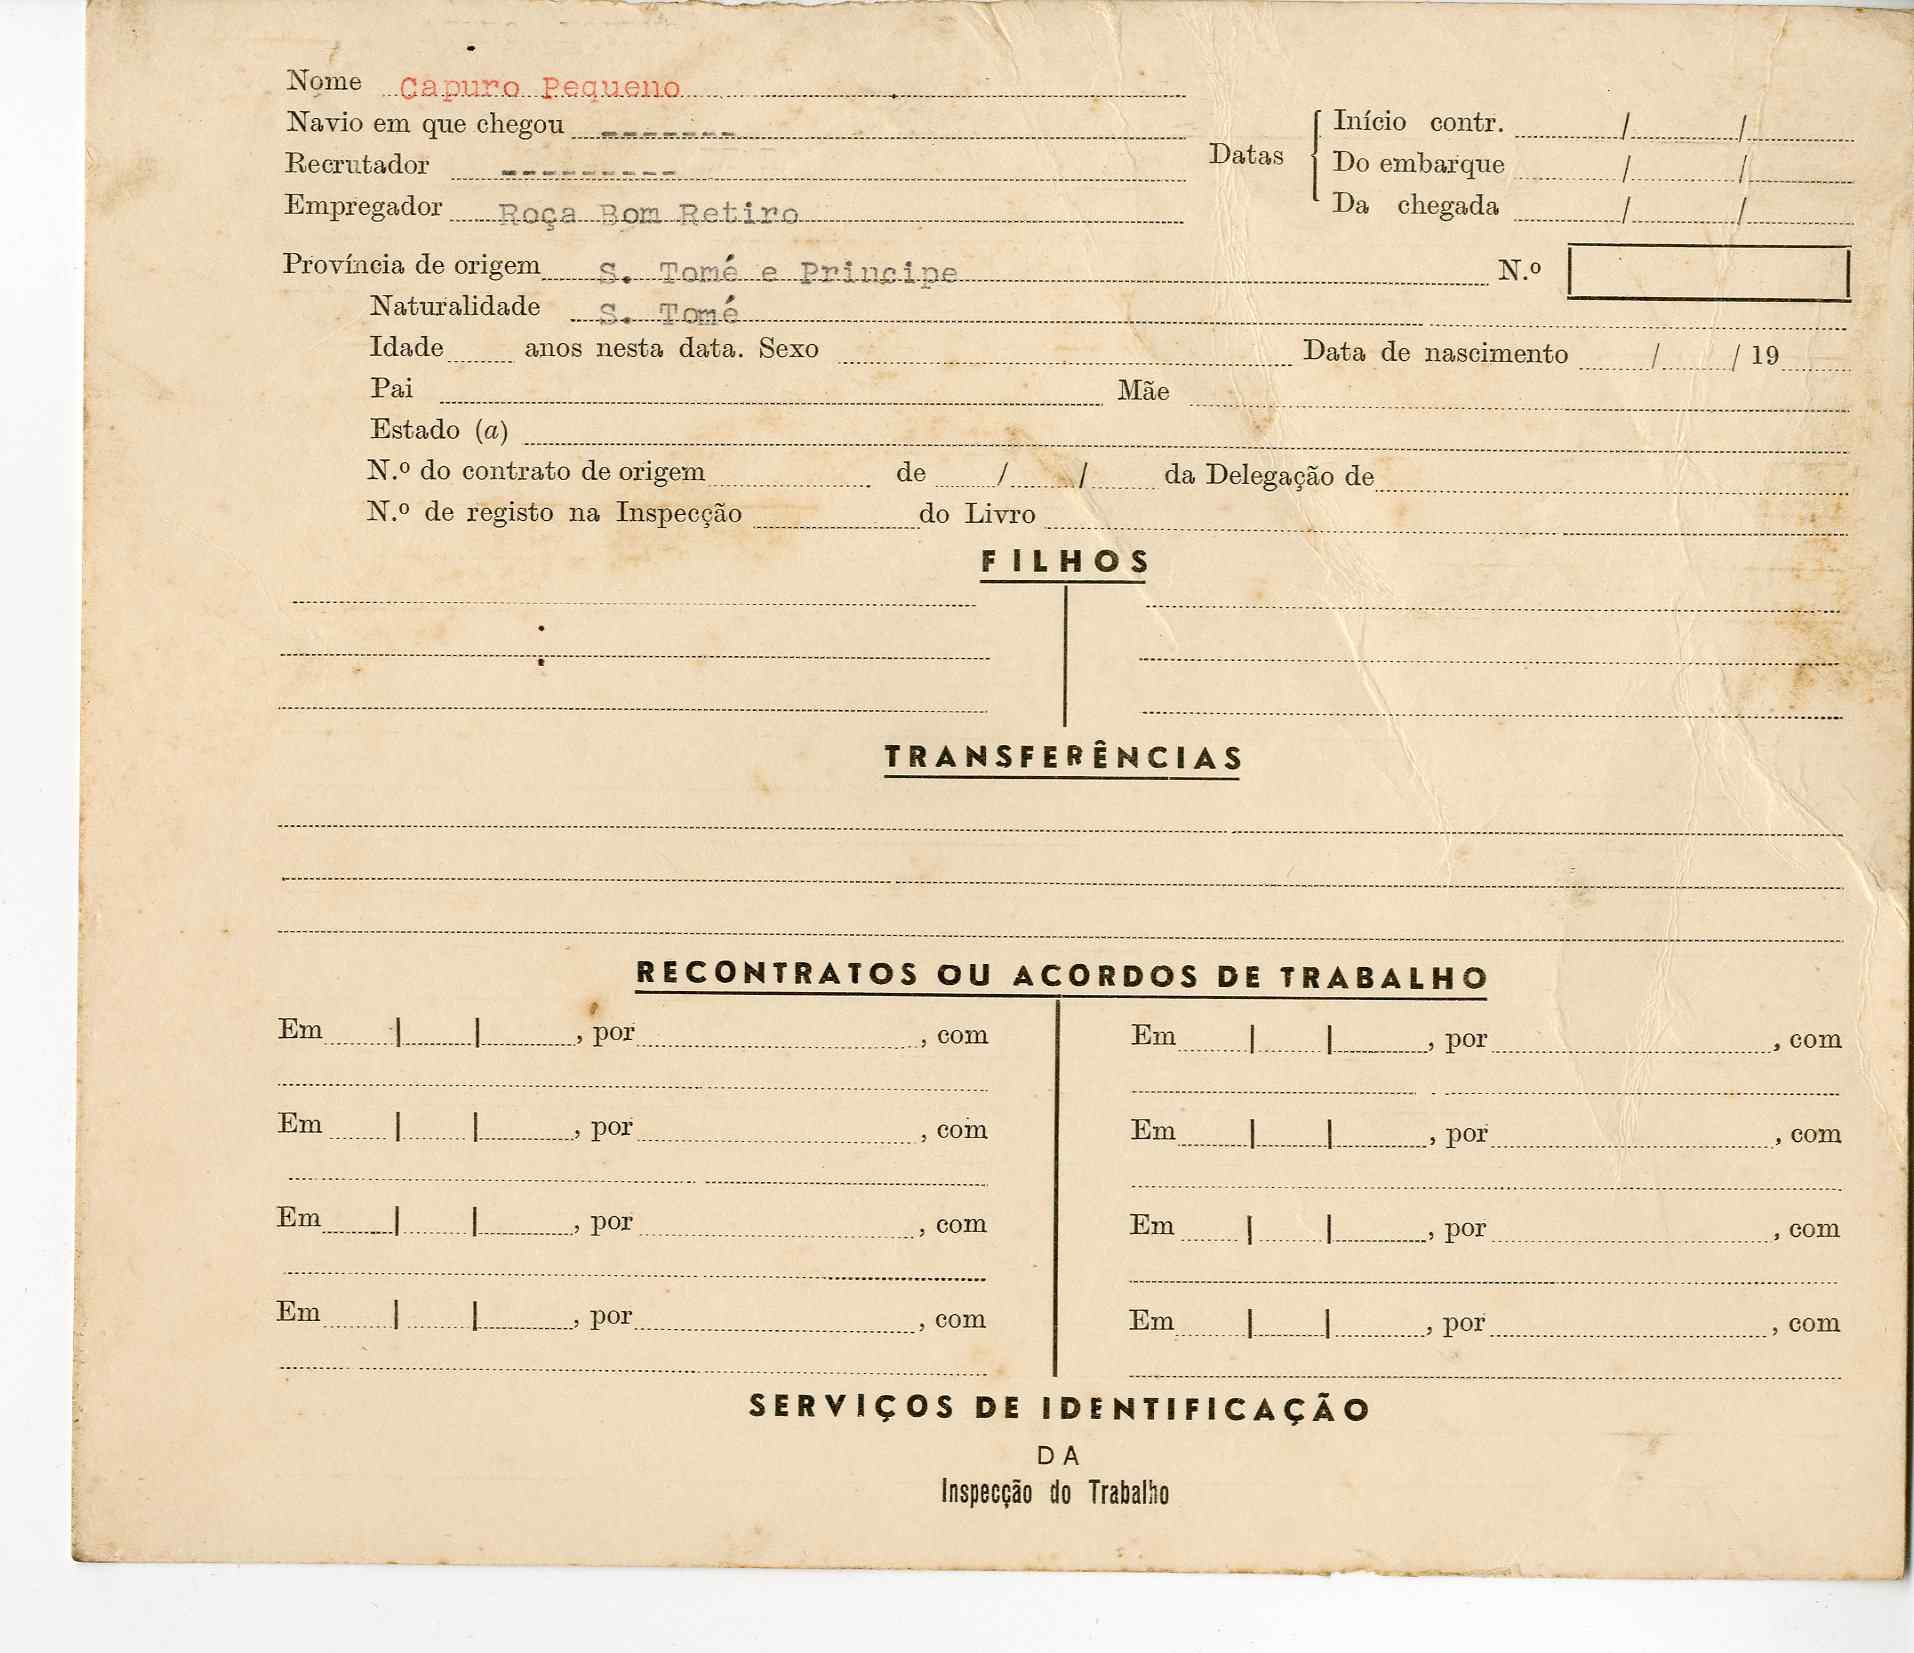 Nome Capuro Pequeno
Navio em que chegou -------
Recrutador ---------
Empregador Roça Bom Retiro
Datas
Início contr. / /
Do embarque / /
Da chegada / /
Província de origem S. Tomé e Principe N.º
Naturalidade S. Tomé
Idade anos nesta data. Sexo Data de nascimento / / 19
Pai Mãe
Estado (a)
N.º do contrato de origem de / / da Delegação de
N.º de registo na Inspecção do Livro
FILHOS
TRANSFERÊNCIAS
RECONTRATOS OU ACORDOS DE TRABALHO
Em | | , por , com
Em | | , por , com
Em | | , por , com
Em | | , por , com
Em | | , por , com
Em | | , por , com
Em | | , por , com
Em | | , por , com
SERVIÇOS DE IDENTIFICAÇÃO
DA
Inspecção do Trabalho